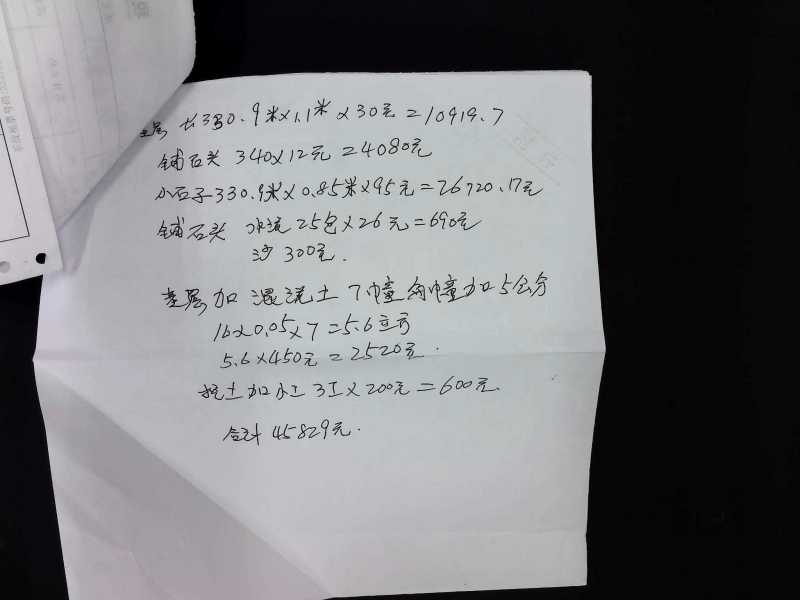 基层 长330.9米×1.1米×30元=10919.7
铺石头 340×12元=4080元
小石子330.9米×0.85米×95元=26720.17元
铺石头 水泥25包×26元=690元
沙300元.
基层加混流土7幢每幢加5公分
16×0.05×7=5.6立方
5.6×450元=2520元.
挖土加小工 3工×200元=600元.
合计 45829元.